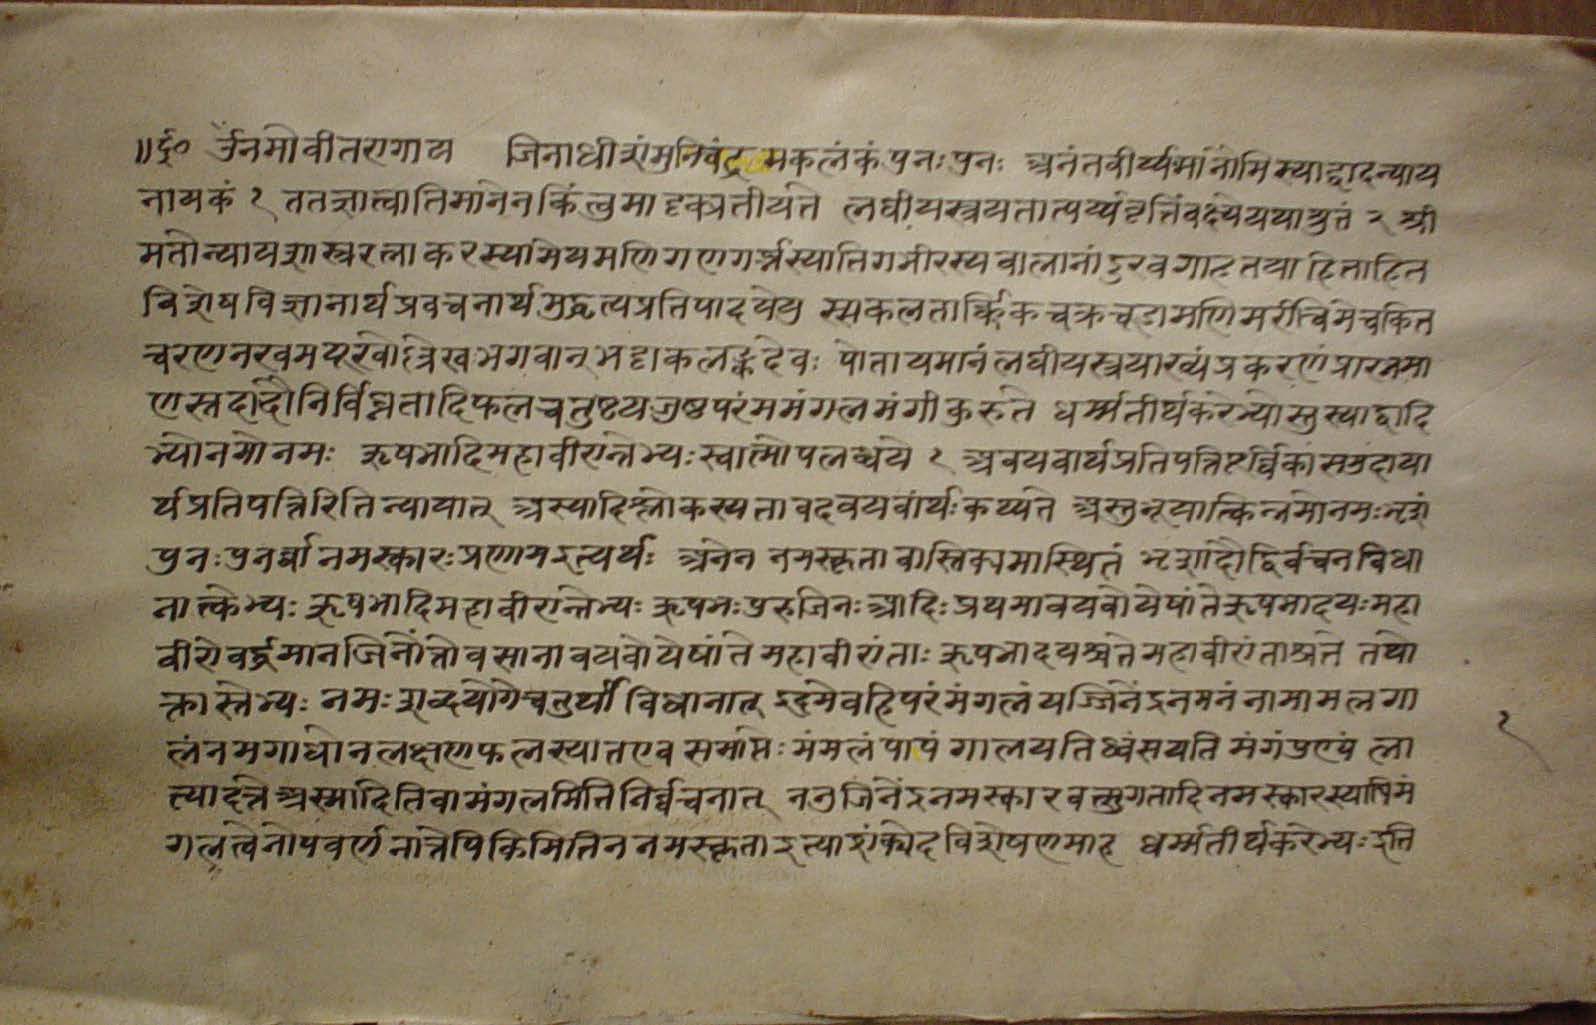 ॥६० उँनमोवीतरागाय जिनाधीशंमुनिचंद्रमकलंकंपुनःपुनः अनंतवीर्य्यमांनौमिस्याद्वादन्याय
नायकं १ ततज्ञात्वातिमानेनकिंतुमादृक्प्रतीर्यते लघीयस्त्रयतात्पर्य्यंवृत्तिंवक्ष्येयथाश्रुतं २ श्री
मतोन्यायशास्त्ररत्नाकरस्यामेयमणिगणगर्ब्भस्यातिगभीरस्यबालानांदुरवगाहतयाहिताहित
विशेषविज्ञानार्थप्रवचनार्थमुद्धृत्यप्रतिपादयेयु स्सकलतार्क्किकचक्रचूडामणिमरीचिमेचकित
चरणनखमयूखोल्लेखभगवान्भट्टाकलङ्कदेवः पोतायमानंलघीयस्त्रयाख्यंप्रकरणंप्रारभमा
णस्तदादौनिर्विघ्नतादिफलचतुष्टयजुष्टपरंममंगलमंगीकुरुते धर्म्मतीर्थकरेभ्योस्तुस्याद्वादि
भ्योनमोनमः ऋषभादिमहावीरान्तेभ्यःस्वात्मोपलब्धये १ अवयवार्थप्रतिपत्तिपूर्व्विकासमुदाया
र्थप्रतिपत्तिरितिन्यायात् अस्यादिश्लोकस्यतावदवयवार्थःकथ्यते अस्तुभूयात्किन्नमोनमःभृशं
पुनःपुनर्व्वानमस्कारःप्रणामइत्यर्थः अनेन नमस्कृतावास्तिक्यमास्थितं भृशादौद्विर्वचनविधा
नात्केभ्यः ऋषभादिमहावीरान्तेभ्यः ऋषभःपुरुजिनःआदिःप्रथमावयवोयेषांतेऋषभादयःमहा
वीरोवर्द्धमानजिनोंतोवसानावयवोयेषांतेमहावीरांताः ऋषभादयश्चतेमहावीरांताश्चते तथो
क्तास्तेभ्यः नमःशब्दयोगेचतुर्थीविधानात् इदमेवहिपरंमंगलंयज्जिनेंद्रनमनंनामामलगा
लंनमगाधोनलक्षणफलस्यातएवसमाप्तेः मंमलंपापंगालयतिध्वंसयतिमंगंपुण्यं ला
त्यादत्ते अस्मादितिवामंगलमितिनिर्व्वचनात् ननुजिनेंद्रनमस्कारवत्सुगतादिनमस्कारस्यापिमं
गलत्वेनोपवर्णनात्तेपिकिमितिननमस्कृताइत्याशंक्येदंविशेषणमाह धर्म्मतीर्थकरेभ्यःइति
१